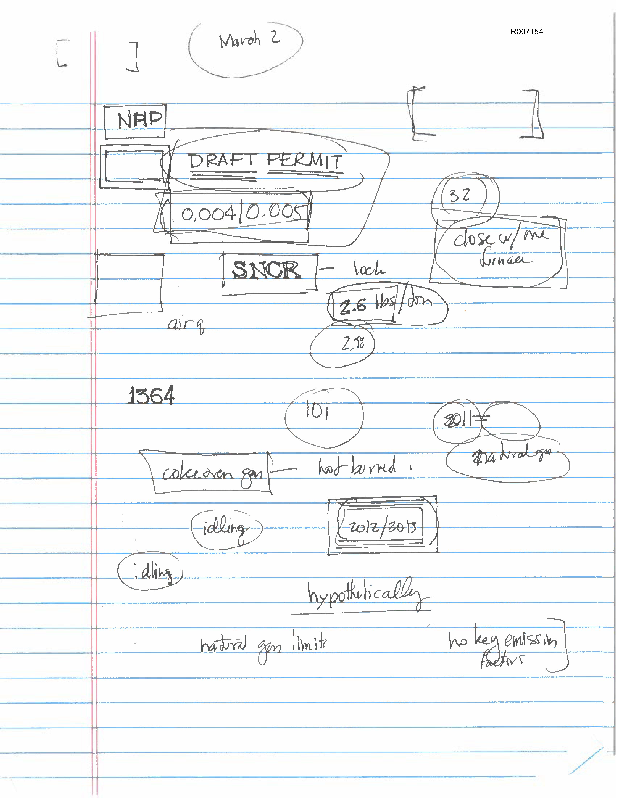 R007154
[ ]
March 2
[ ]
NHD
DRAFT PERMIT
0.004/0.005
32
close w/ one
furnace
SNCR — lock
2.5 lbs/ton
air q
1364
101
2011 =
natural gas
coke oven gas — not burned.
idling
2012/2013
idling
hypothetically
natural gas limits
no key emission
factors ]